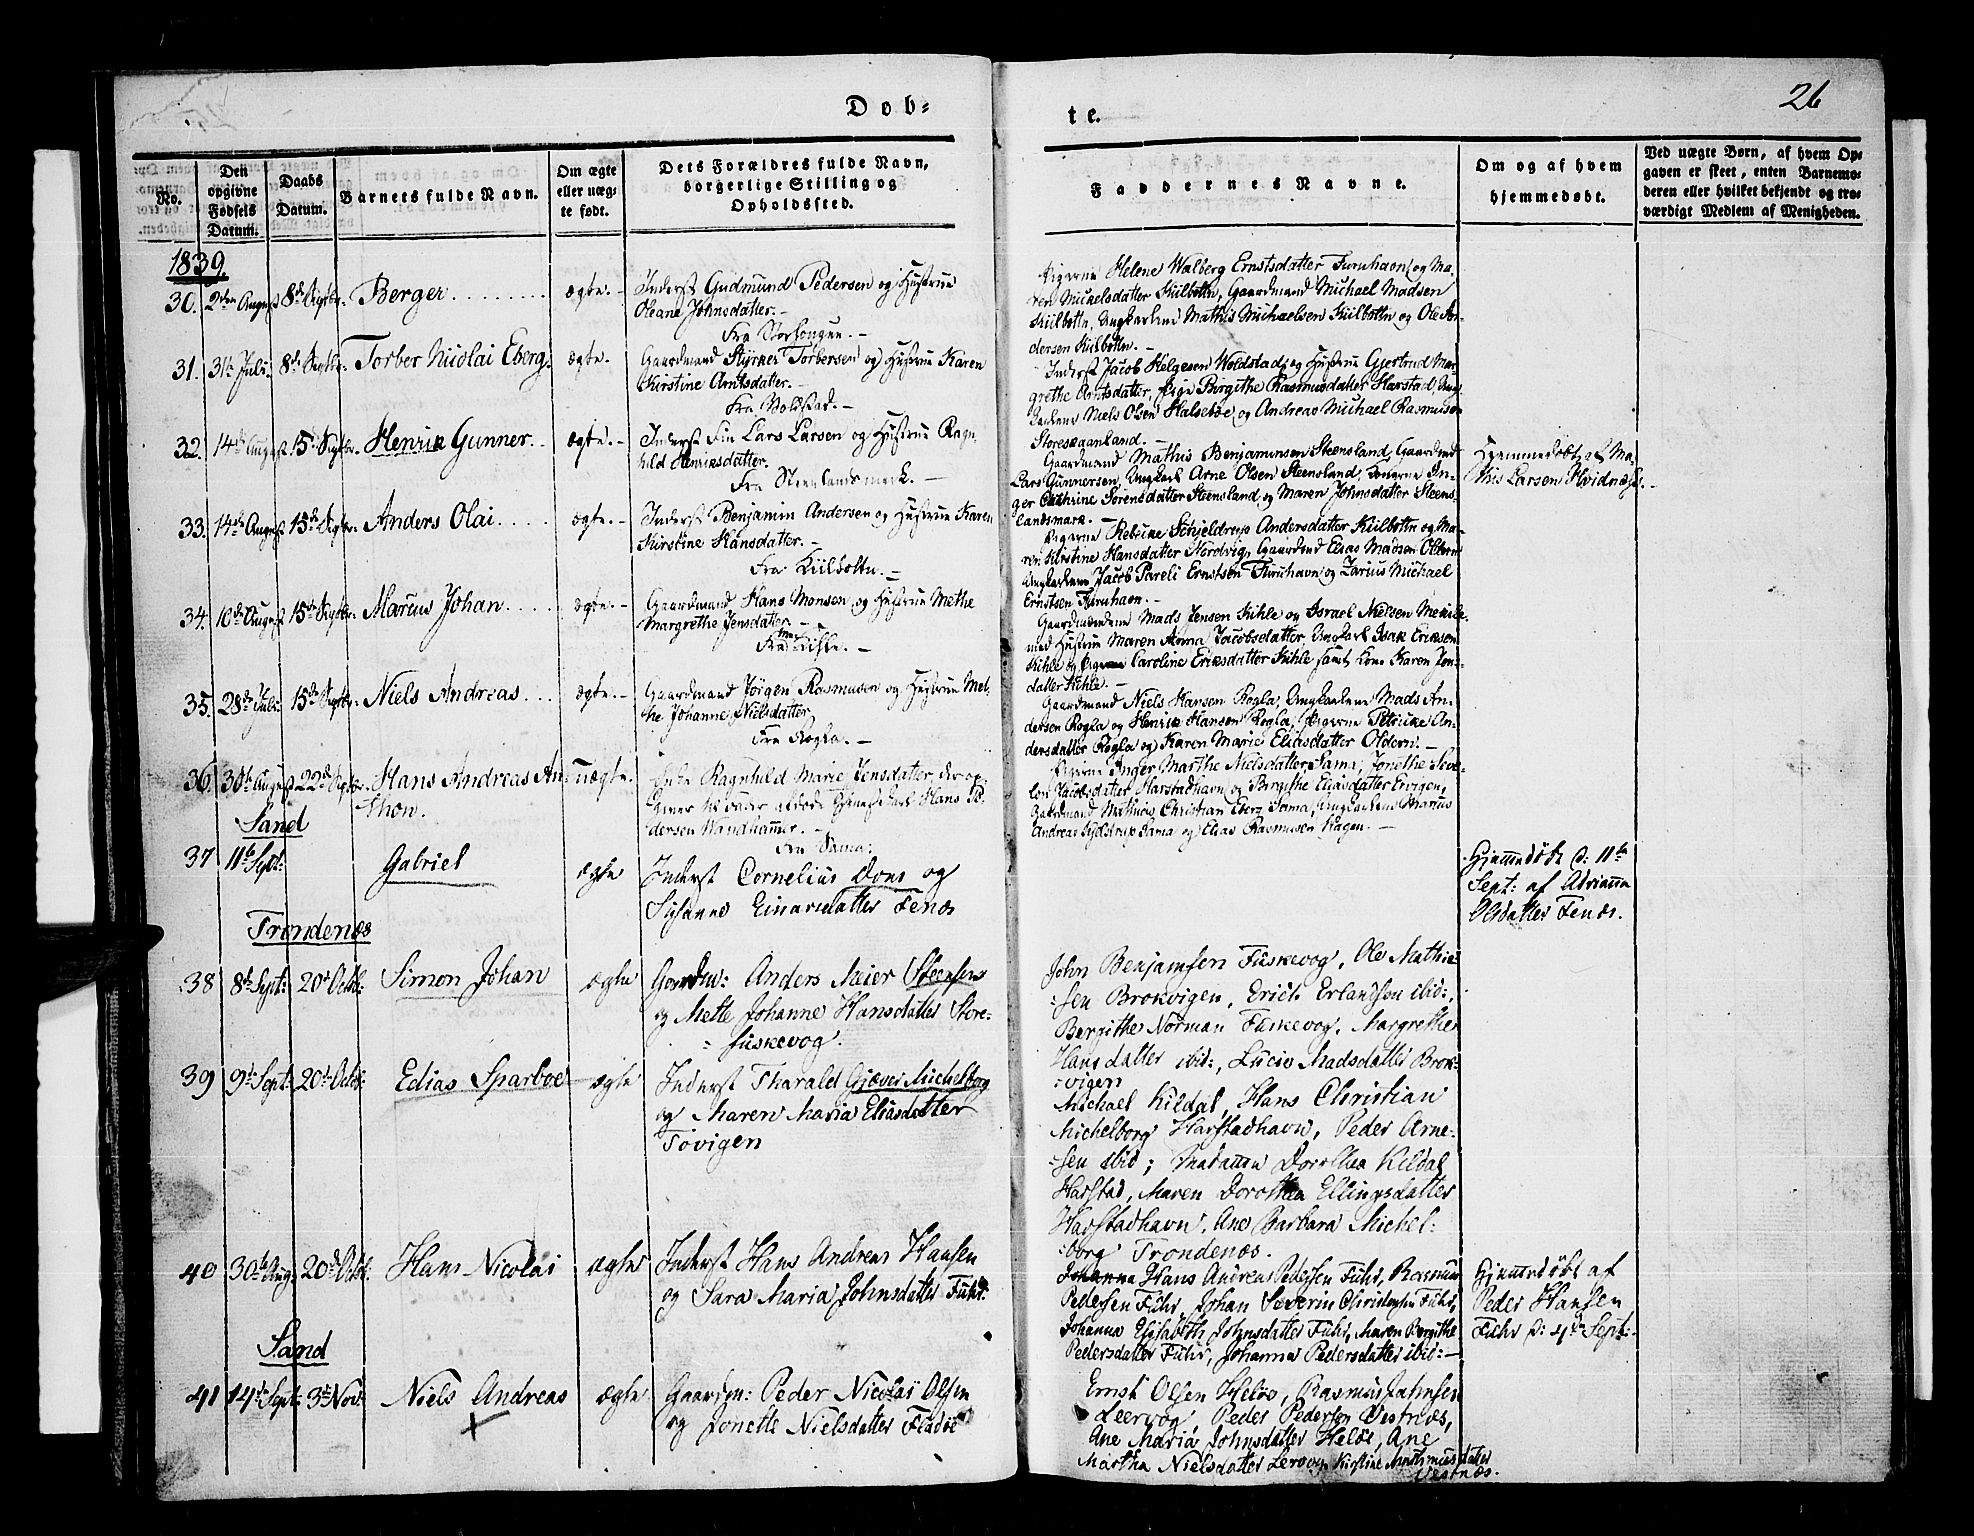 26
Døb-
te.
No.
Den
opgivne
Fødsels
Datum.
Daabs
Datum.
Barnets fulde Navn.
Om ægte
eller uæg-
te født.
Dets Forældres fulde Navn,
borgerlige Stilling og
Opholdssted.
Faddernes Navne.
Om og af hvem
hjemmedøbt.
Ved uægte Børn, af hvem Op-
gaven er skeet, enten Barnemo-
deren eller hvilket bekjendt og tro-
værdigt Medlem af Menigheden.
1839
30. 2den August 8de Septbr. Berger ægte.
Inderst Gudmund Pedersen og Hustrue
Oleane Johnsdatter.
Pigerne Helene Walberg Ernstsdatter Furuhavn og Ma-
ren Michelsdatter Kiilbotn, Gaardmand Michael Madsen
Kiilbotn, Ungkarlene Mathis Michaelsen Kiilbotn og Ole An-
dersen Kiilbotn.
31. 31te Juli 8de Septbr. Torber Nicolai Eberg. ægte.
Gaardmand Styrker Torbersen og Hustrue Karen
Kirstine Arntsdatter.
Fra Woldstad.
Inderst Jacob Helgesen Woldstad og Hustrue Gjertrud Mar-
grethe Arntsdatter, Pige Birgithe Rasmusdatter Harstad, Ung-
karlene Niels Olsen Halsebøe og Andreas Michael Rasmusen
32. 14de August 15de Septbr. Henrik Gunner. ægte.
Inderst Fin Lars Larsen og Hustrue Ragn-
hild Henriksdatter.
Fra Steenlandsmark.
Gaardmand Mathis Benjaminsen Steensland, Gaardmd
Lars Gunnersen, Ungkarl Arne Olsen Steensland, Konerne In-
ger Cathrine Sørensdatter Steensland og Maren Johnsdatter Steens-
landsmark.
Hjemmedøbt af Ma-
this Larsen Hvidnæs.
33. 14de August 15de Septbr. Anders Olai ægte.
Inderst Benjamin Andersen og Hustrue Karen
Kirstine Hansdatter.
Fra Kiilbotn.
Pigerne Rebine Schjeldrup Andersdatter Kiilbotn og Ma-
ren Kirstine Hansdatter Nordvig, Gaardmd Elias Madsen Oldern
Ungkarlene Jacob Pareli Ernstsen Furuhavn og Zarius Michael
Ernstsen Furuhavn.
34. 10de August 15de Septbr. Marcus Johan ægte.
Gaardmand Hans Monsen og Hustrue Methe
Margrethe Jensdatter
Gaardmændene Mads Jensen Kihle og Israel Nielsen
med Hustrue Maren Anna Jacobsdatter, Ungkarl Isak Eriksen
Kihle og Caroline Eriksdatter Kihle samt Kone Karen Jens-
datter Kihle.
35. 28de Juli 15de Septbr. Niels Andreas ægte.
Gaardmand Jörgen Rasmusen og Hustrue Met-
he Johanne Nielsdatter
Fra Rogla.
Gaardmand Niels Hansen Rogla, Ungkarlene Mads An-
dersen Rogla og Henrik Hansen Rogla, Pigerne Petrikke An-
dersdatter Rogla og Karen Marie Eliasdatter Oldern.
36. 30te August 22de Septbr. Hans Andreas An-
thon. uægte.
Enke Ragnhild Marie Jensdatter, der op-
Hans Pe-
dersen Wandhammer.
Fra Sama.
Pigerne Inger Marthe Nielsdatter Sama, Jonethe Seve-
Jacobsdatter Harstadhavn og Birgithe Eliasdatter Ervigen,
Gaardmand Mathias Christian Eberg Sama, Ungkarlene Marius
Andreas Sama og Elias Rasmusen Hagen.
Sand
37 11te Sept: Gabriel ægte
Inderst Cornelius Dons og
Susanne Einarsdatter Fenæs
Hjemmedøbt d: 11te
Sept: af Adrianna
Olsdatter Fenæs.
Trondenæs
38 8de Sept: 20de Octb: Simon Johan ægte
Gaardm: Anders Meier Steensen
og Mette Johanne Hansdatter Store-
fuskevog.
John Benjamsen Fuskevog, Ole Mathie-
sen Brokvigen, Erich Erlandsen ibid:,
Bergithe Norman Fuskevog, Margrethe
Hansdatter ibid:, Lucie Madsdatter Brok-
vigen
39 9de Sept: 20de Octb: Edias Sparboe ægte
Inderst Tharald Gjæver Michelborg
og Maren Maria Eliasdatter
Tøvigen
Michael Kildal, Hans Christian
Michelborg Harstadhavn, Peder Arne-
sen ibid; Madamm Dorothea Kildal
Harstad, Maren Dorothea Ellingsdatter
Harstadhavn, Ane Barbara Michel-
borg Trondenæs.
40 30te Aug: 20de Octb: Hans Nicolai ægte
Inderst Hans Andreas Hansen
og Sara Maria Johnsdatter Fuhr.
Johanna Hans Andreas Pedersen Fuhr, Rasmus
Pedersen Fuhr, Johan Severin Christensen Fuhr,
Johanna Elisabeth Johnsdatter Fuhr, Maren Bergithe
Pedersdatter Fuhr, Johanna Pedersdatter ibid:
Hjemmedøbt af
Peder Hansen
Fuhr d: 4de Sept:
Sand
41 14de Sept: 3de Nov: Niels Andreas ægte
Gaardm: Peder Nicolai Olsen
og Jonette Nielsdatter Fladøe
Ernst Olsen Heløe, Rasmus Johnsen
Leervog, Peder Pedersen Vestnæs,
Ane Maria Johnsdatter Heløe, Ane
Martha Nielsdatter Lervog, Kirstine Mathiasdatter
Vestnæs.